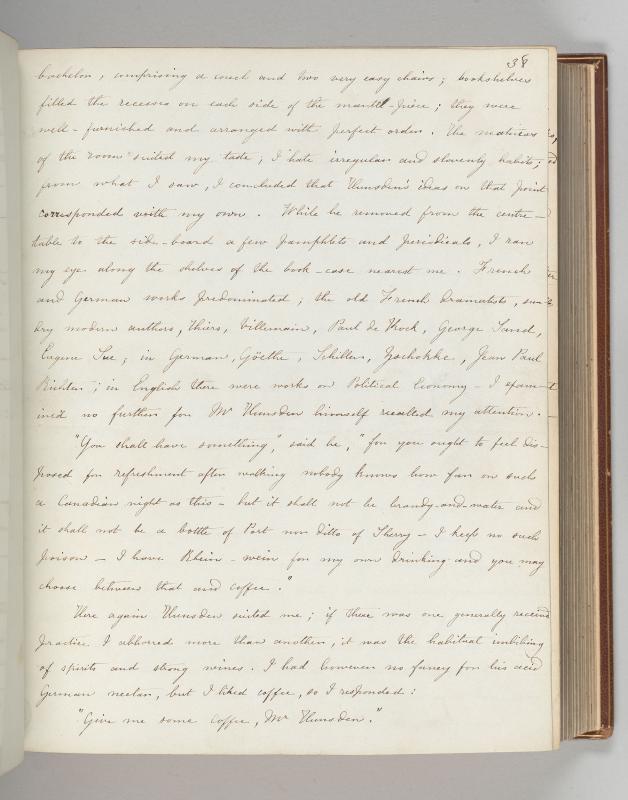 38
bachelor, comprising a couch and two very easy chairs; bookshelves
filled the recesses on each side of the mantle-piece; they were
well-furnished and arranged with perfect order. The
of the room suited my taste; I hate irregular and slovenly habits;
from what I saw, I concluded that Hunsden's ideas on that point
corresponded with my own. While he removed from the centre-
table to the side-board a few pamphlets and periodicals, I ran
my eye along the shelves of the book-case nearest me. French
and German works predominated; the old French dramatists, sun-
dry modern authors, Thiers, Villemain, Paul de Kock, George Sand,
Eugene Sue; in German, Göethe, Schiller, Zschokke, Jean Paul
Richter; in English there were works on Political Economy - I exam-
ined no further for Mr Hunsden himself recalled my attention.
"You shall have something", said he, "for you ought to feel dis-
posed for refreshment after walking nobody knows how far on such
a Canadian night as this - but it shall not be brandy-and-water and
it shall not be a bottle of Port nor ditto of Sherry - I keep no such
poison - I have Rhein-wein for my own drinking and you may
choose between that and coffee."
Here again Hunsden suited me; if there was one generally received
practice I abhorred more than another, it was the habitual imbibing
of spirits and strong wines. I had however no fancy for his acid
German nectar, but I liked coffee, so I responded:
"Give me some coffee, Mr Hunsden."